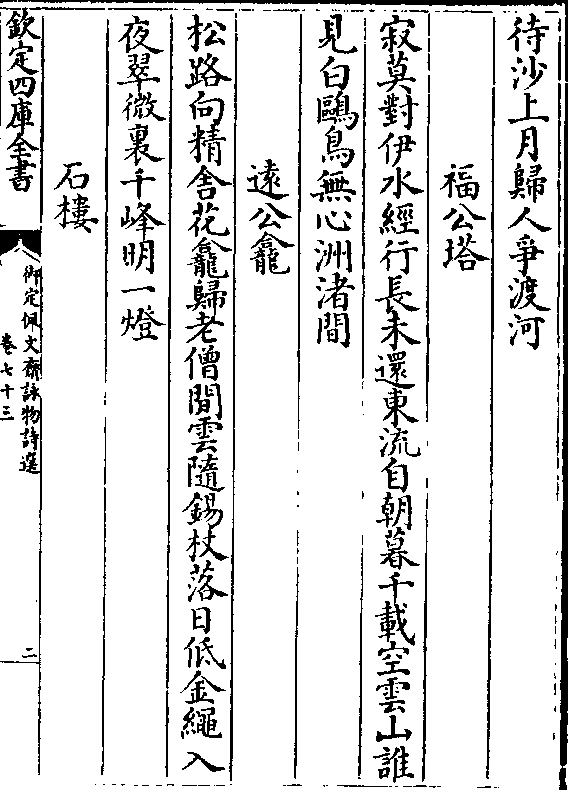 待沙上月歸人爭渡河
福公塔
寂莫對伊水經行長未還東流自朝暮千載空雲山誰
見白鷗鳥無心洲渚間
遠公龕
松路向精舍花龕歸老僧閒雲隨錫杖落日低金繩入
夜翠微裏千峰明一燈
石樓
欽定四庫全書
御定佩文齋詠物詩選
卷七十三
二